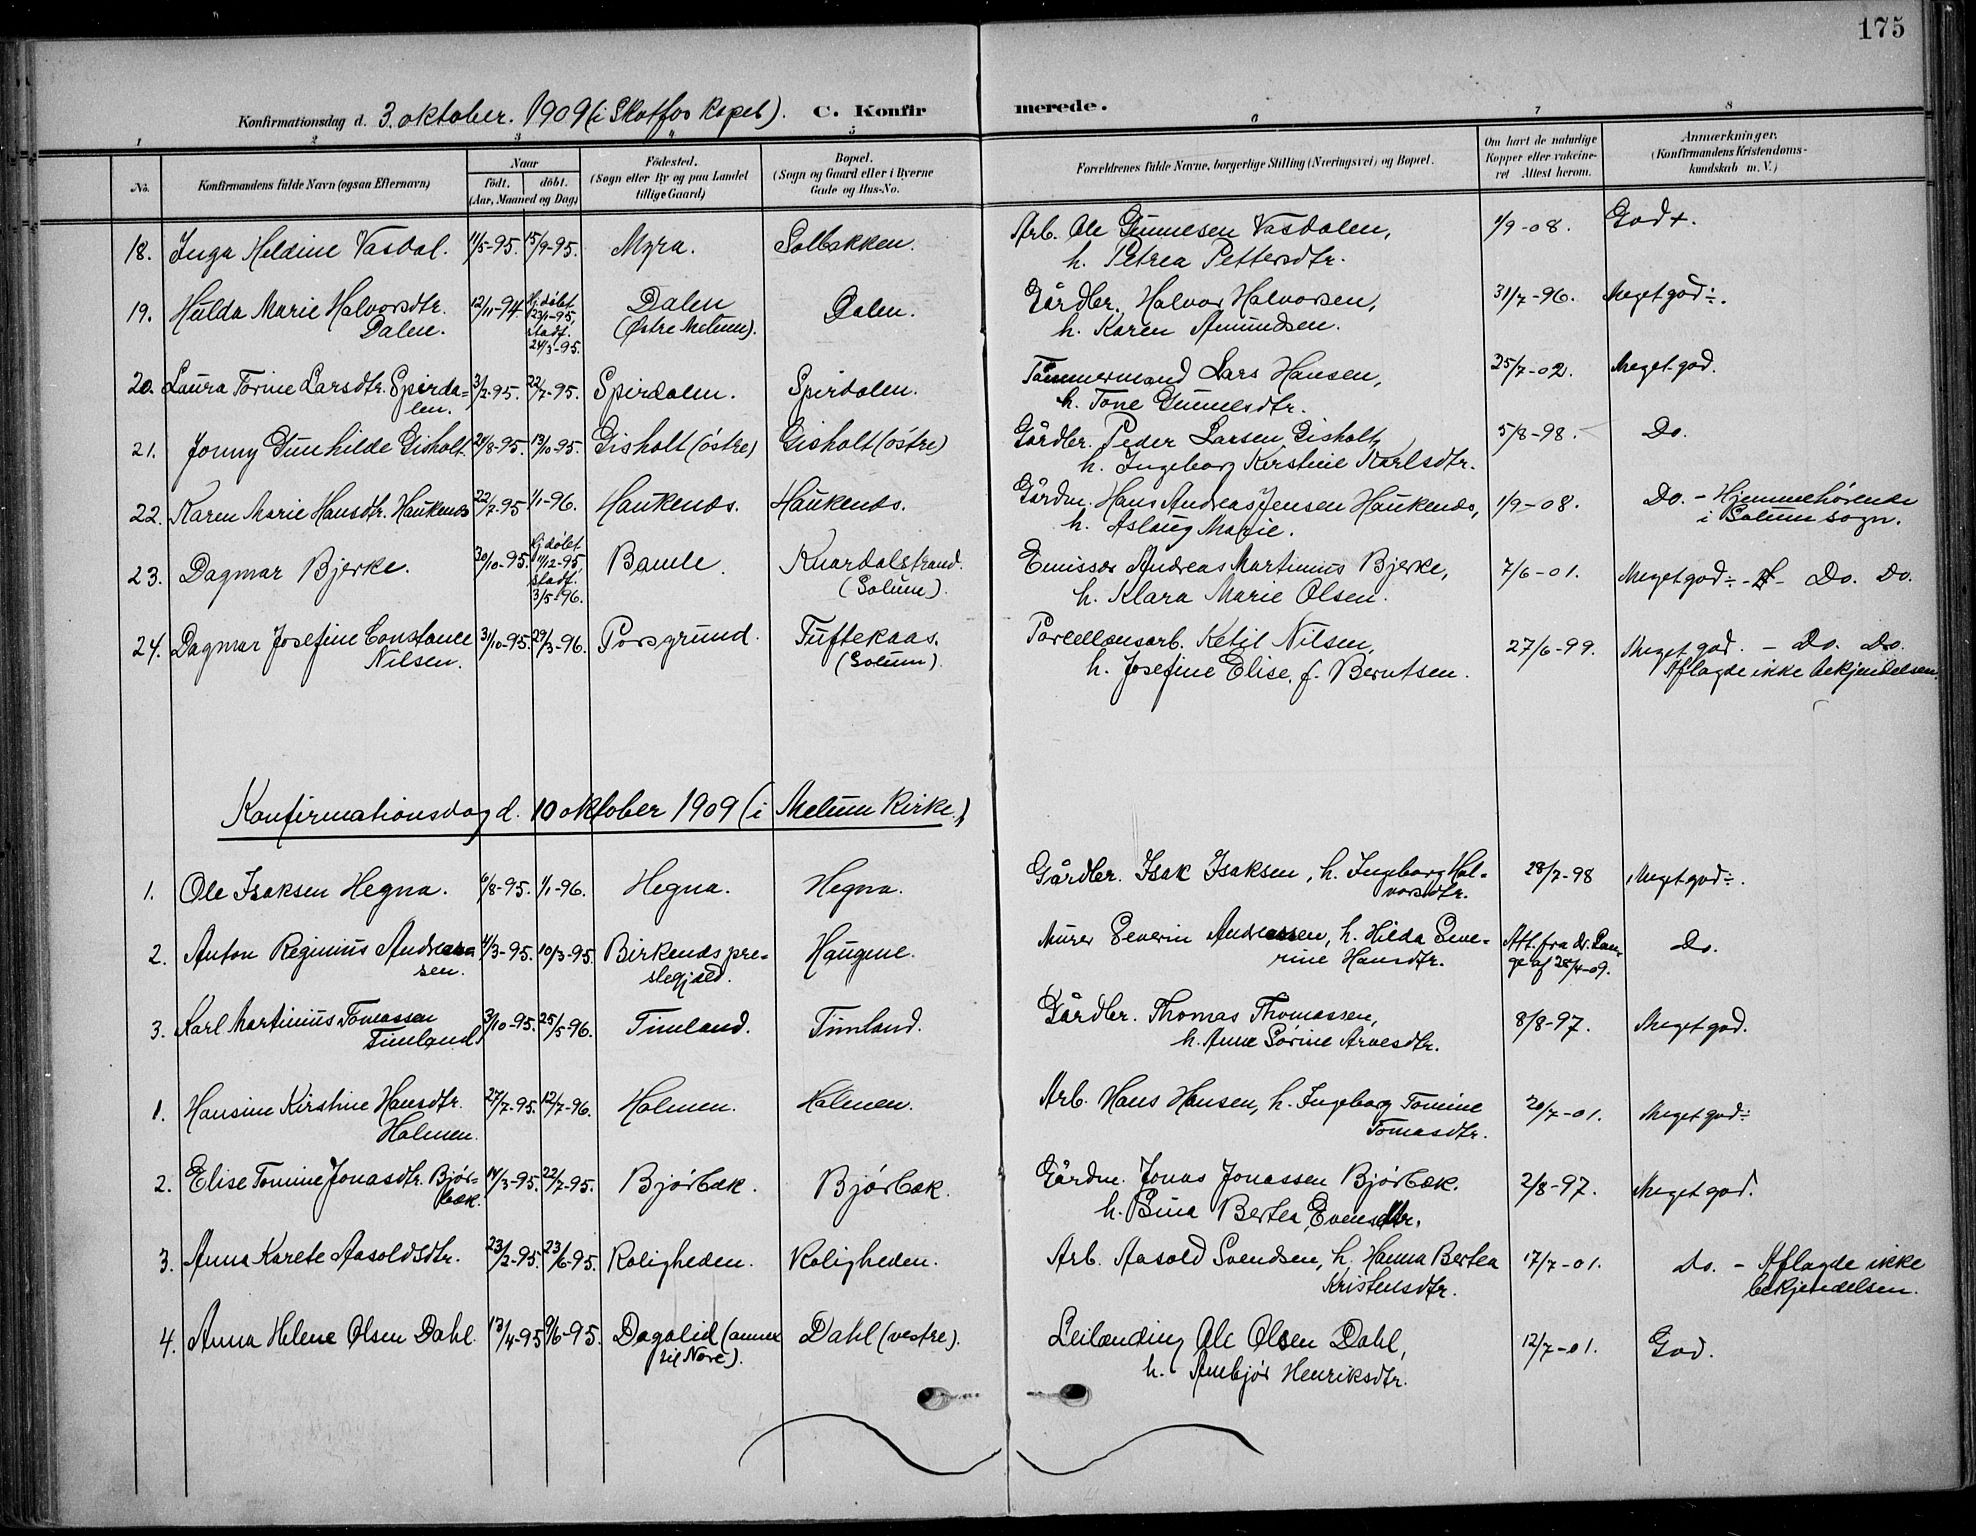 175
Konfirmationsdag d. 3. oktober. 1909 (i Skotfos kapel). C. Konfirmerede.
1 2 3 4 5 6 7 8
No. Konfirmandens fulde Navn (ogsaa Efternavn) Naar født. døbt. (Aar, Maaned og Dag) Fødested. (Sogn eller By og paa Landet tillige Gaard) Bopæl. (Sogn og Gaard eller i Byerne Gade og Hus-No. Forældrenes fulde Navne, borgerlige Stilling (Næringsvei) og Bopæl. Om havt de naturlige Kopper eller vakcineret Attest herom. Anmærkninger. (Konfirmandens Kristendomskundskab m. V.)
18. Inga Heldine Vasdal. 11/5-95. 15/9-95. Myra. Solbakken. Arb. Ole Gunnesen Vasdalen, 1/9-08. God +.
h. Petrea Pettersdtr.
19. Hulda Marie Halvorsdtr. 12/11-94 Hj.døbt Dalen Dalen. Gårdbr. Halvor Halvorsen, 31/7-96. Meget god ÷.
Dalen. 23/1-95, stadf. 24/3-95. (Østre Melum). h. Karen Amundsen.
20. Laura Torine Larsdtr. Spirda- 3/2-95. 22/7-95. Spirdalen. Spirdalen. Tømmermand Lars Hansen, 25/7-02. Meget god.
len. h. Tone Gunnelsdtr.
21. Jonny Gunhilde Gisholt. 24/8-95. 13/10-95. Gisholt (østre) Gisholt (østre) Gårdbr. Peder Larsen Gisholt, 5/8-98. Do.
h. Ingeborg Kirstine Karlsdtr.
22. Karen Marie Hansdtr. Haukenæs 22/7-95 1/1-96. Haukenæs. Haukenæs. Gårdm. Hans Andreas Jensen Haukenæs, 1/9-08. Do. - Hjemmehørende
h. Aslaug Marie. i Solum sogn.
23. Dagmar Bjerke. 30/10-95. Hj døbt 11/12-95, stadf. 3/5-96. Bamle. Knardalstrand. Emissær Andreas Martinius Bjerke, 7/6-01. Meget god ÷ - Do. Do.
(Solum). h. Klara Marie Olsen.
24. Dagmar Josefine Constance 31/10-95. 29/3-96. Porsgrund. Tuftekaas. Porcellænsarb. Ketil Nilsen, 27/6-99. Meget god. - Do. Do.
Nilsen. (Solum). h. Josefine Elise, f. Berntsen. Aflagde ikke bekjendelsen.
Konfirmationsdag d. 10 oktober 1909 (i Melum Kirke.)
1. Ole Isaksen Hegna. 6/8-95. 1/1-96. Hegna. Hegna. Gårdbr. Isak Isaksen, h. Ingeborg Hal- 28/7-98 Meget god ÷.
vorsdtr.
2. Anton Reginius Andreas- 4/3-95. 10/3-95. Birkenæs præ- Haugene. Murer Severin Andreassen, h. Hilda Seve- Att. fra dr. Lan- Do.
sen. stegjæld. rine Hansdtr. ge af 28/4-09.
3. Karl Martinius Tomassen 3/10-95. 25/5-96. Timland. Timland. Gårdbr. Thomas Thomassen, 8/8-97. Meget god.
Timland. h. Anne Sørine Arnesdtr.
1. Hansine Kirstine Hansdtr. 27/7-95. 12/7-96. Holmen. Holmen. Arb. Hans Hansen, h. Ingeborg Tomine 20/7-01. Meget god ÷
Holmen. Tomasdtr.
2. Elise Tomine Jonasdtr. Bjør- 14/3-95. 22/7-95. Bjørbæk. Bjørbæk. Gårdm. Jonas Jonassen Bjørbæk. 2/8-97. Meget god.
bæk. h. Sina Bertea Evensdtr.
3. Anna Karete Aasoldsdtr. 23/2-95. 23/6-95. Roligheden. Roligheden. Arb. Aasold Svendsen, h. Hanna Bertea 17/7-01. Do. - Aflagde ikke
Kristensdtr. bekjendelsen.
4. Anna Helene Olsen Dahl. 13/4-95 9/6-95. Dagalid (annex Dahl (vestre). Leilænding Ole Olsen Dahl, 12/7-01. God.
til Nore). h. Anbjør Henriksdtr.